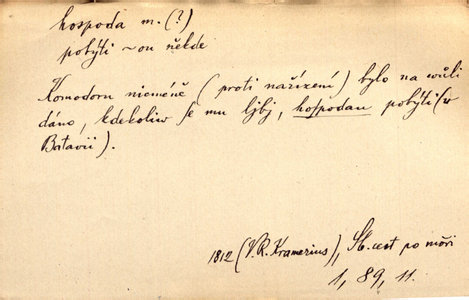 hospoda m. (?)
pobýti ~ou někde
Komodoru nicméně (proti nařízení) bylo na wůli
dáno, kdekoliw se mu ljbj, hospodau pobýti (w
Batavii).
1812 (V. R. Kramerius), Sb. cest po moři
1, 89, 11.